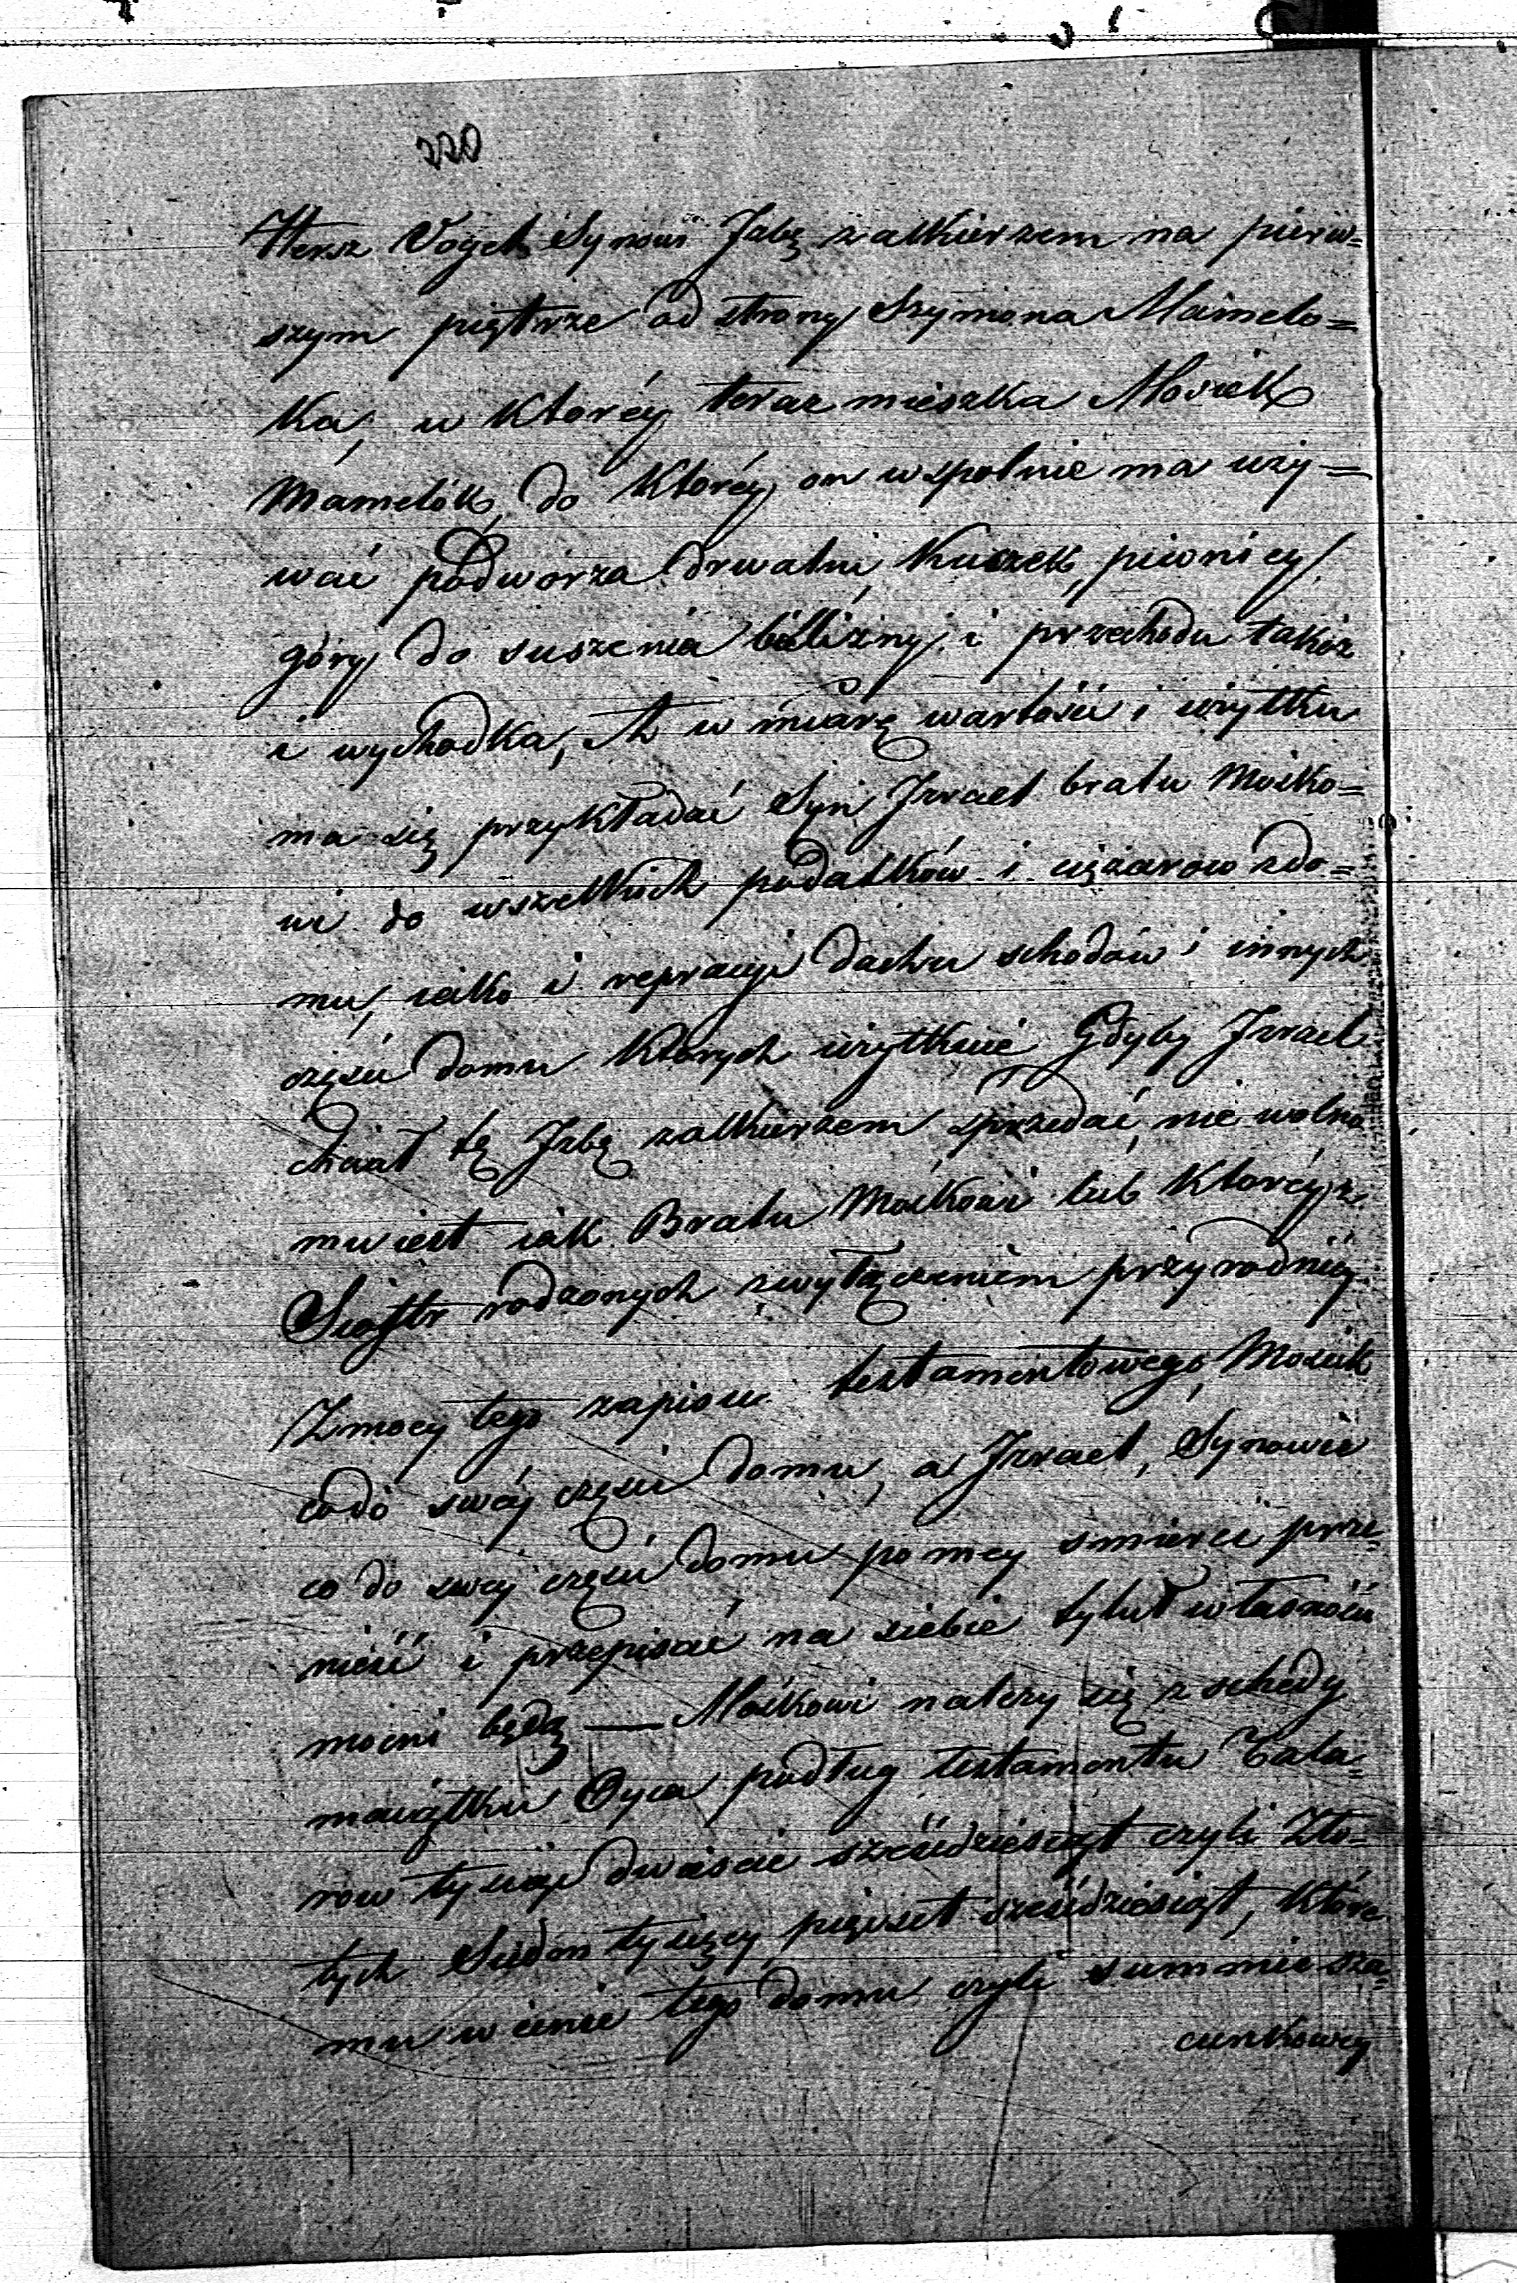 220
Hersz Vogel Synowi Jzbę zalkierzem na pierw=
szym piętrze od strony Szymona Mamelo=
ka, w ktoréy teraz mieszka Mosiek
Mamelók, do ktoréy on wspolnie ma uży=
wać podworza drwalni, kuczek, piwnicy,
góry do suszenia bielizny, i przechodu takoż
i wychodka, A w miarę wartości i użytku
ma się przykładać Syn Jzrael bratu Mośko=
wi do wszelkich podatków i ciężarow zdo=
mu, iako i repracyi dachu schodów i innych
części domu ktorych użytkuie Gdyby Jzrael
chciał tę Jzbę zalkierzem sprzedać, nie wolno
mu iest iak Bratu Mośkowi lub ktoréy z
Siostr rodzonych zwyłączeniem przyrodniéy
Zmocy tego zapisu testamentowego Mosiek
codo swéj części domu, a Jzrael, Synowie
co do swey części domu po mey smierci prze
nieść i przepisać na siebie tytuł własności
mocni będą — Mośkowi należy się z schedy
maiątku Oyca podług testamentu Tala=
row tysiąc dwieście sześćdziesiąt czyli Zło=
tych Siedm tysięcy pięćset sześćdziesiąt, które
mu w cenie tego domu czyli summie sza=
cunkowey